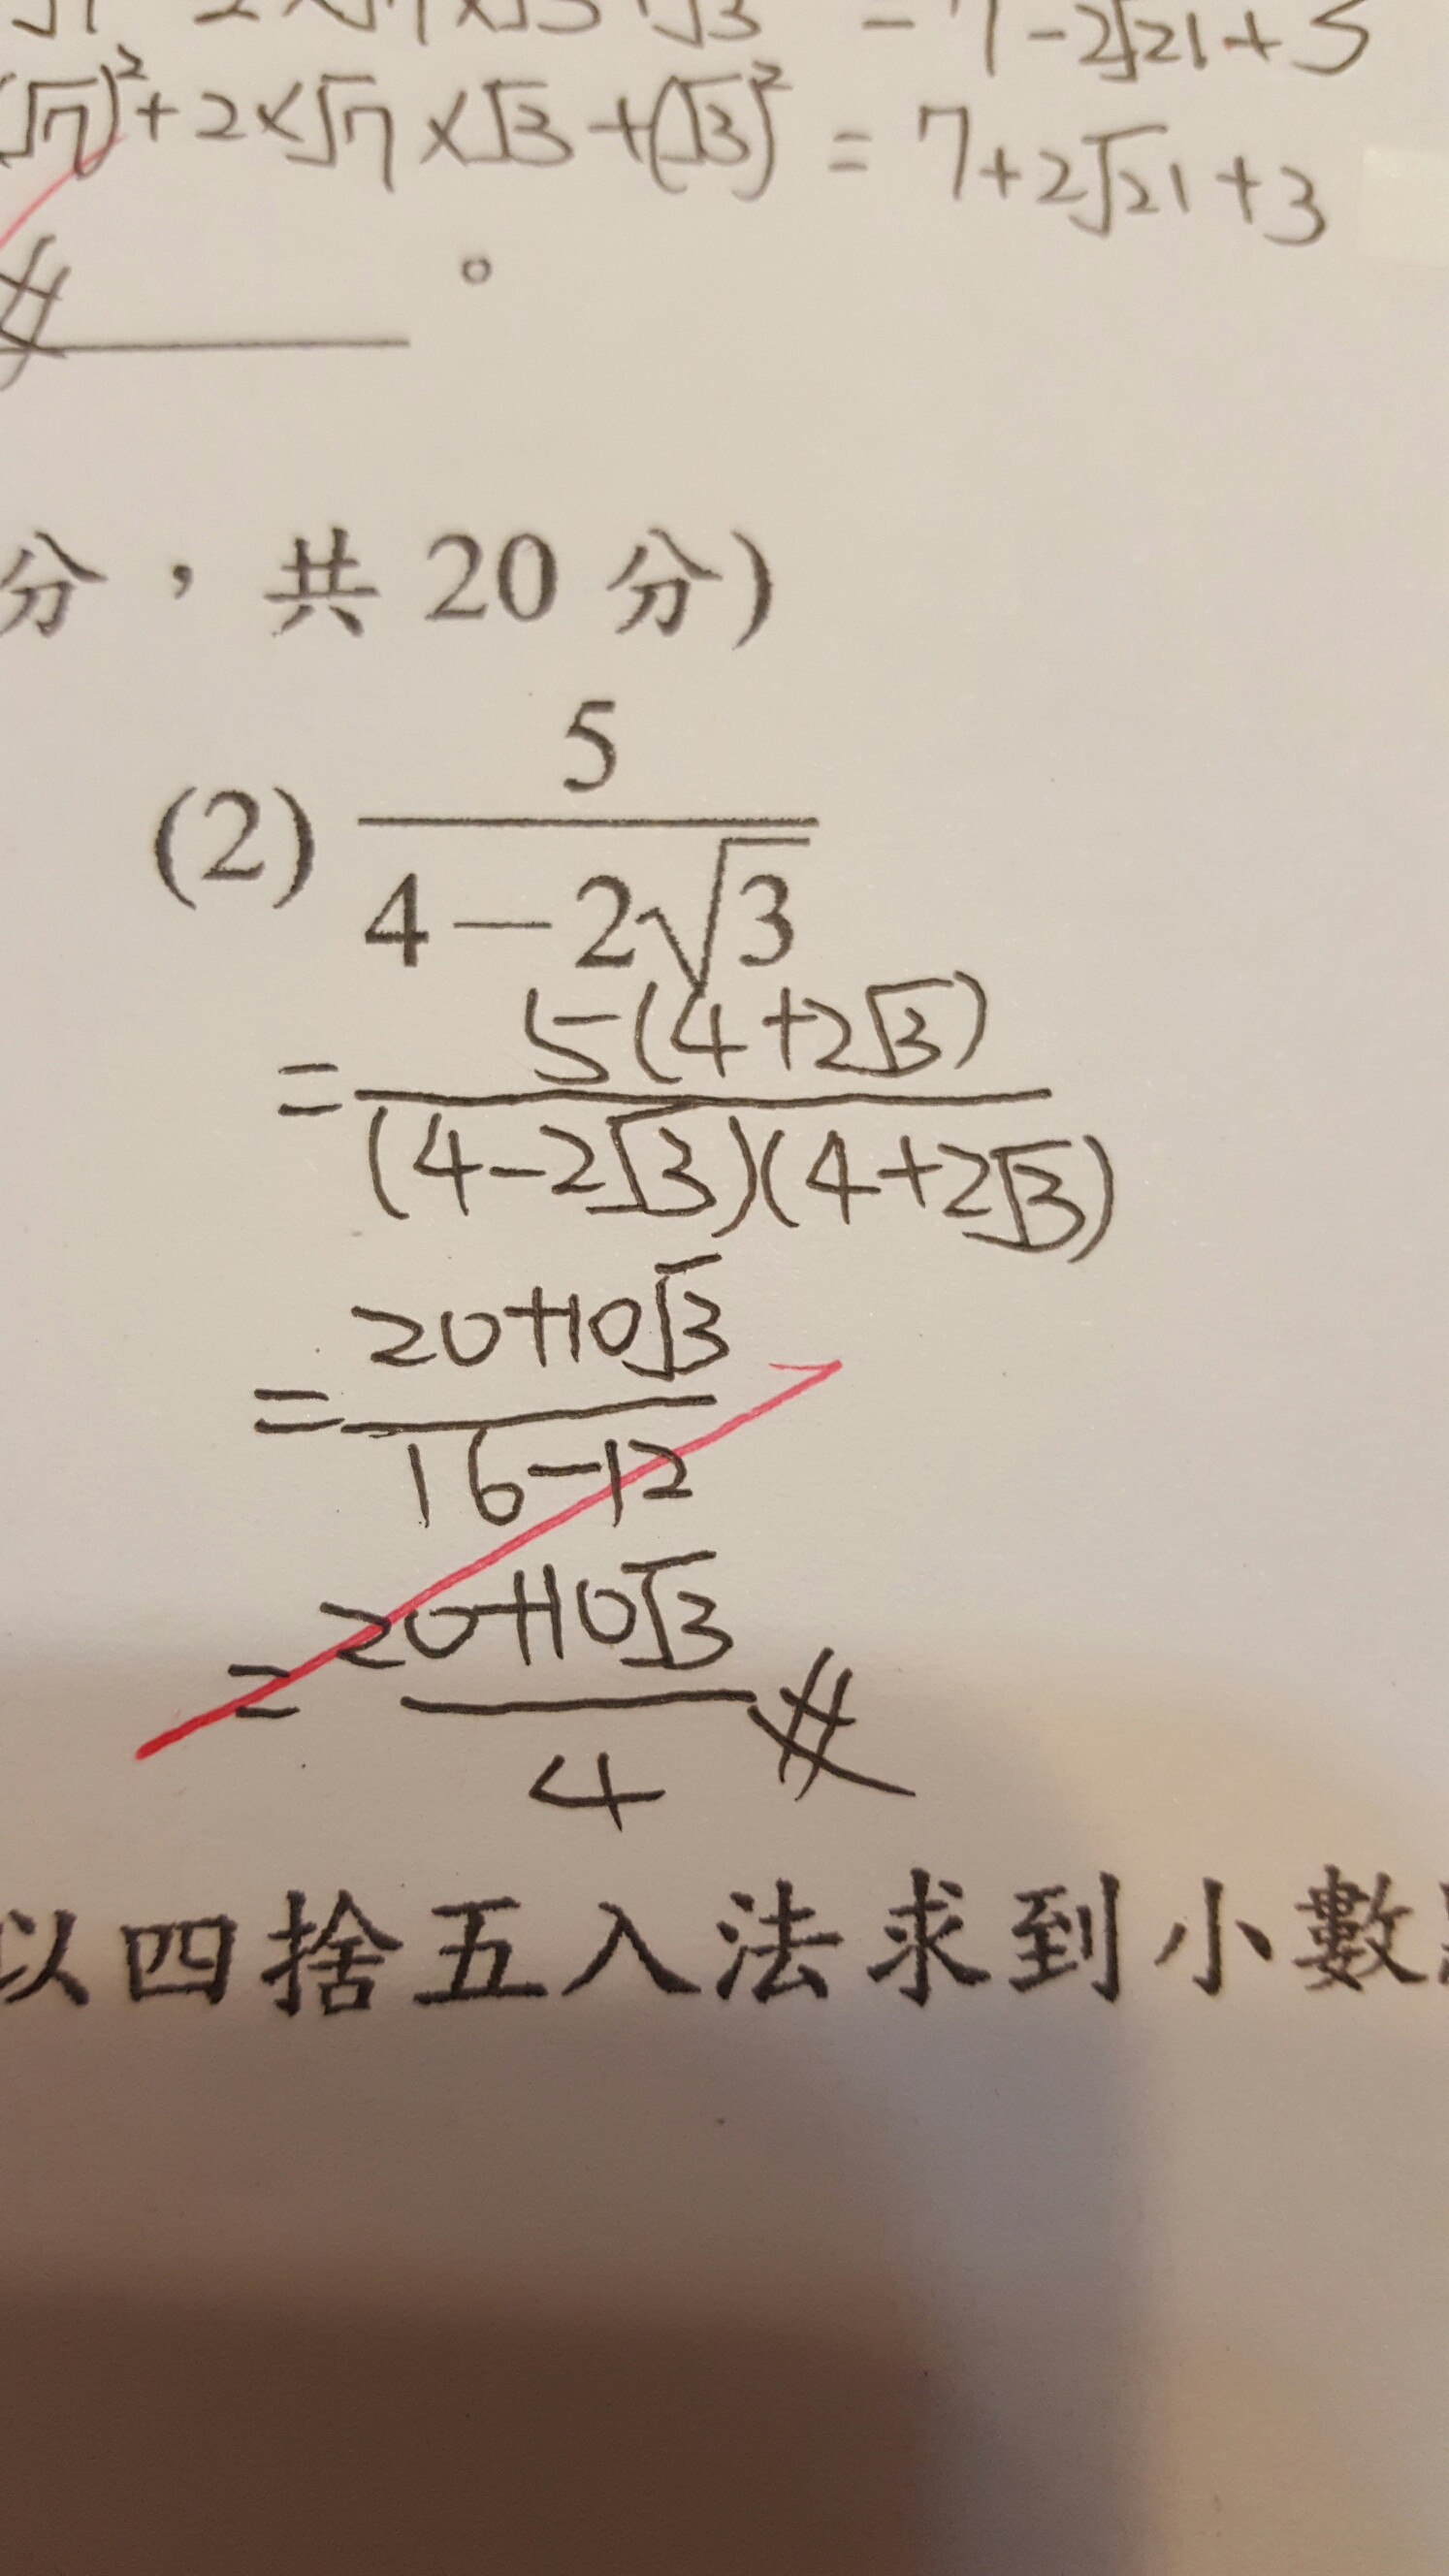 = 7-2√21+3
(√7)²+2×√7×√3+(√3)² = 7+2√21+3
。
分，共 20 分)
(2) 5
4－2√3
= 5(4+2√3)
(4-2√3)(4+2√3)
= 20+10√3
16-12
= 20+10√3
4
以四捨五入法求到小數